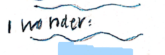 I wonder: